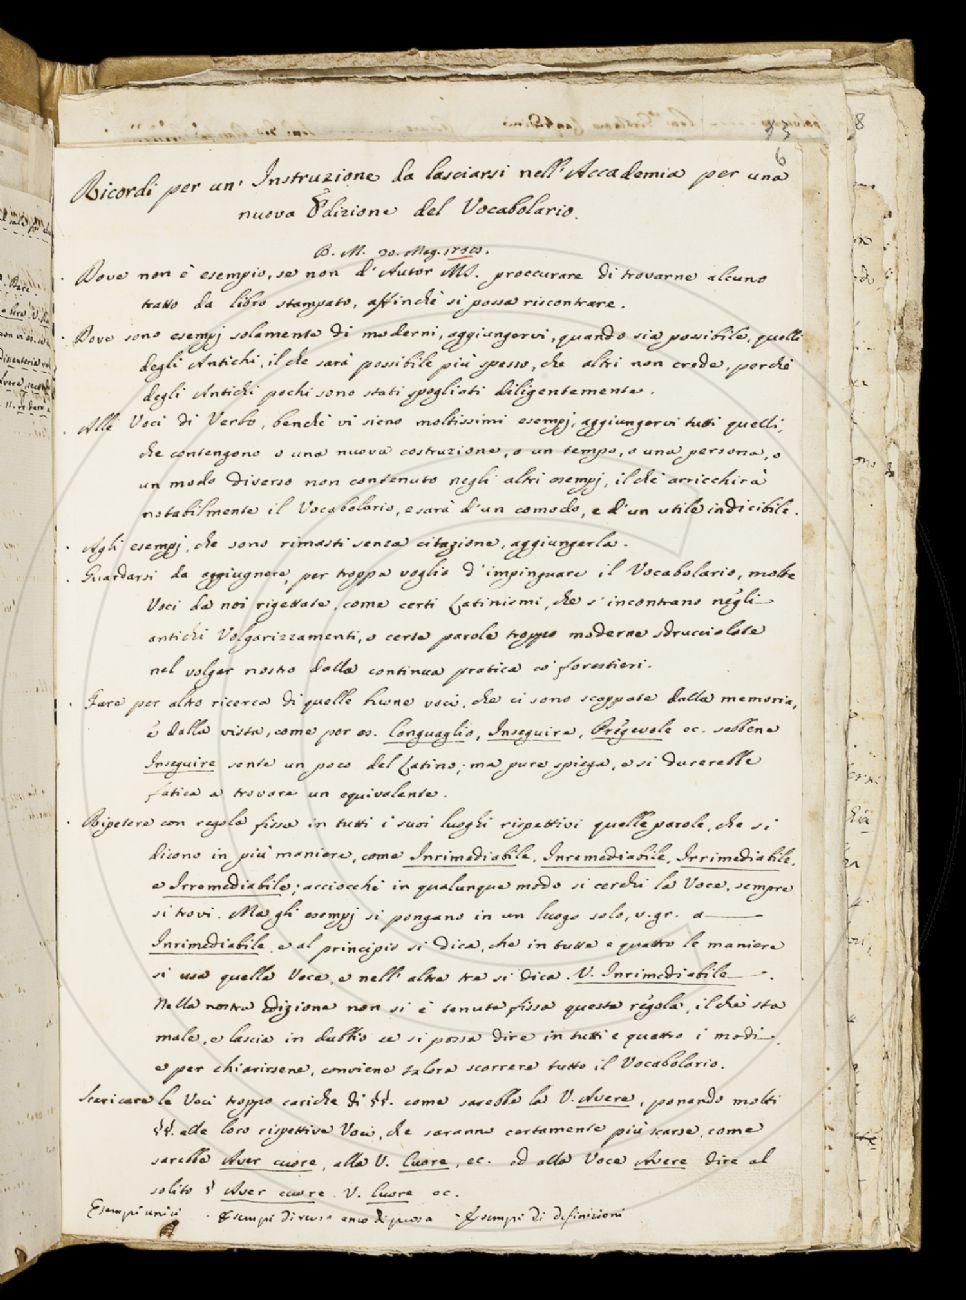 33
6
8
Ricordi per un' Instruzione da lasciarsi nell'Accademia per una
nuova Edizione del Vocabolario.
B. M. 20. Mag.
Dove non è esempio, se non d'Autor MS. proccurare di trovarne alcuno
tratto da libro stampato, affinchè si possa riscontrare.
Dove sono esempj solamente di moderni, aggiungervi, quando sia possibile, quelli
degli Antichi, il che sarà possibile più spesso, che altri non crede, perchè
degli Antichi pochi sono stati spogliati diligentemente.
Alle Voci di Verbo, benchè vi sieno moltissimi esempj, aggiungervi tutti quelli,
che contengono o una nuova costruzione, o un tempo, o una persona, o
un modo diverso non contenuto negli altri esempj, il che arricchirà
notabilmente il Vocabolario, e sarà d'un comodo, e d'un utile indicibile.
Agli esempj, che sono rimasti senza citazione, aggiungerla.
Guardarsi da aggiugnere, per troppa voglia d'impinguare il Vocabolario, molte
Voci da noi rigettate, come certi Latinismi, che s'incontrano negli
antichi Volgarizzamenti, o certe parole troppo moderne sdrucciolate
nel volgar nostro dalla continua pratica co' forestieri.
Fare per altro ricerca di quelle buone voci, che ci sono scappate dalla memoria,
e dalla vista, come per es. Conguaglio, Inseguire, Pregevole ec. sebbene
Inseguire sente un poco del Latino; ma pure spiega, e si durerebbe
fatica a trovare un equivalente.
Ripetere con regola fissa in tutti i suoi luoghi rispettivi quelle parole, che si
dicono in più maniere, come Inrimediabile, Inremediabile, Irrimediabile,
e Irremediabile; acciocchè in qualunque modo si cerchi la Voce, sempre
si trovi. Ma gli esempj si pongano in un luogo solo, v. gr. a
Inrimediabile, e al principio si dica, che in tutte e quattro le maniere
si usa quella Voce, e nell'altre tre si dica. V. Inrimediabile.
Nella nostra Edizione non si è tenuta fissa questa regola, il che sta
male, e lascia in dubbio se si possa dire in tutti e quattro i modi,
e per chiarirsene, conviene talora scorrere tutto il Vocabolario.
Scaricare le Voci troppo cariche di §§. come sarebbe la V. Avere, ponendo molti
§§. alle loro rispettive Voci, che saranno certamente più scarse, come
sarebbe Aver cuore, alla V. Cuore, ec. ed alla Voce Avere dire al
solito § Aver cuore. V. Cuore ec.
Esempi unici . Esempi di versi anco di prosa . Esempi di definizioni